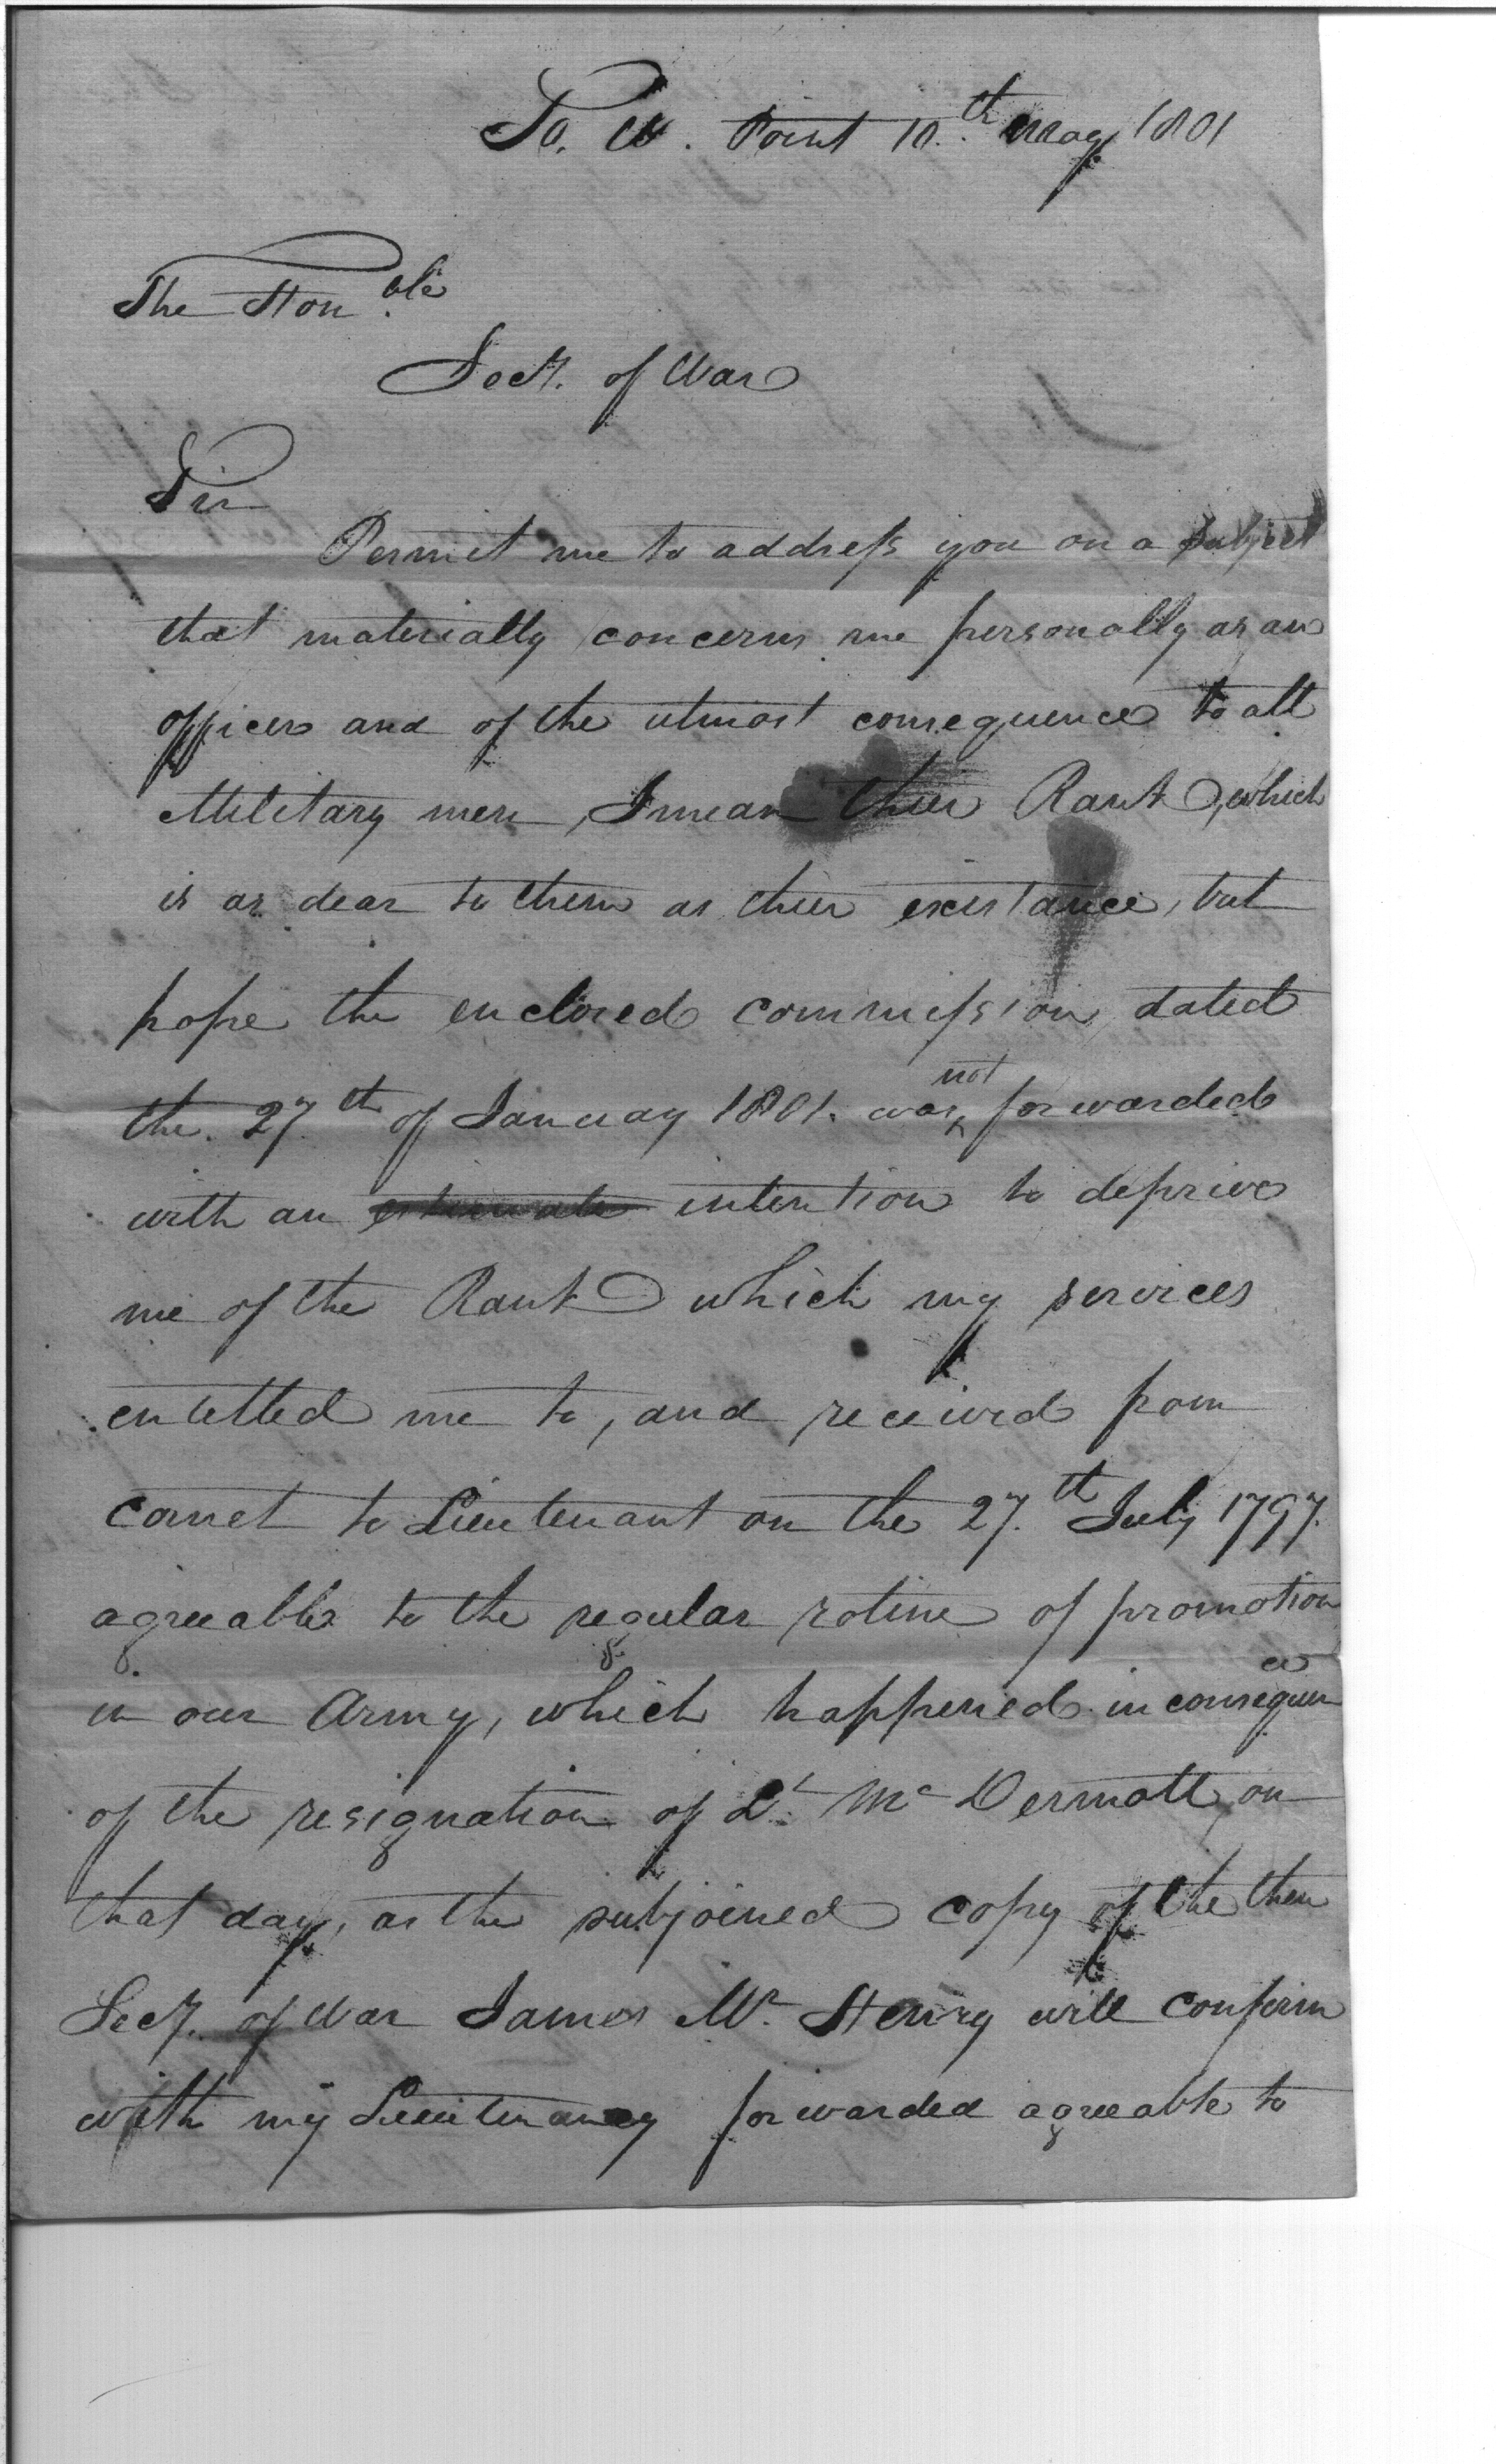 So. W. Point 10.th May 1801
The Honble
Secy. of War
Sir
Permit me to address you on a subject
that materially concerns me personally as an
officer and of the utmost consequence to all
Military men, I mean thier Rank, which
is as dear to them as thier existance, but
hope the enclosed commission, dated
the 27th of January 1801. was not forwarded
with an intention to deprive
me of the Rank which my services
entitled me to, and received from
cornet to Lieutenant on the 27.th July 1797.
agreeable to the regular rotine of promotion
in our Army, which happened in consequence
of the resignation of Lt. McDermott, on
that day, as the subjoined copy of the then
Secy. of War James Mc. Henry will confirm
with my Lieutenancy forwarded agreeable to